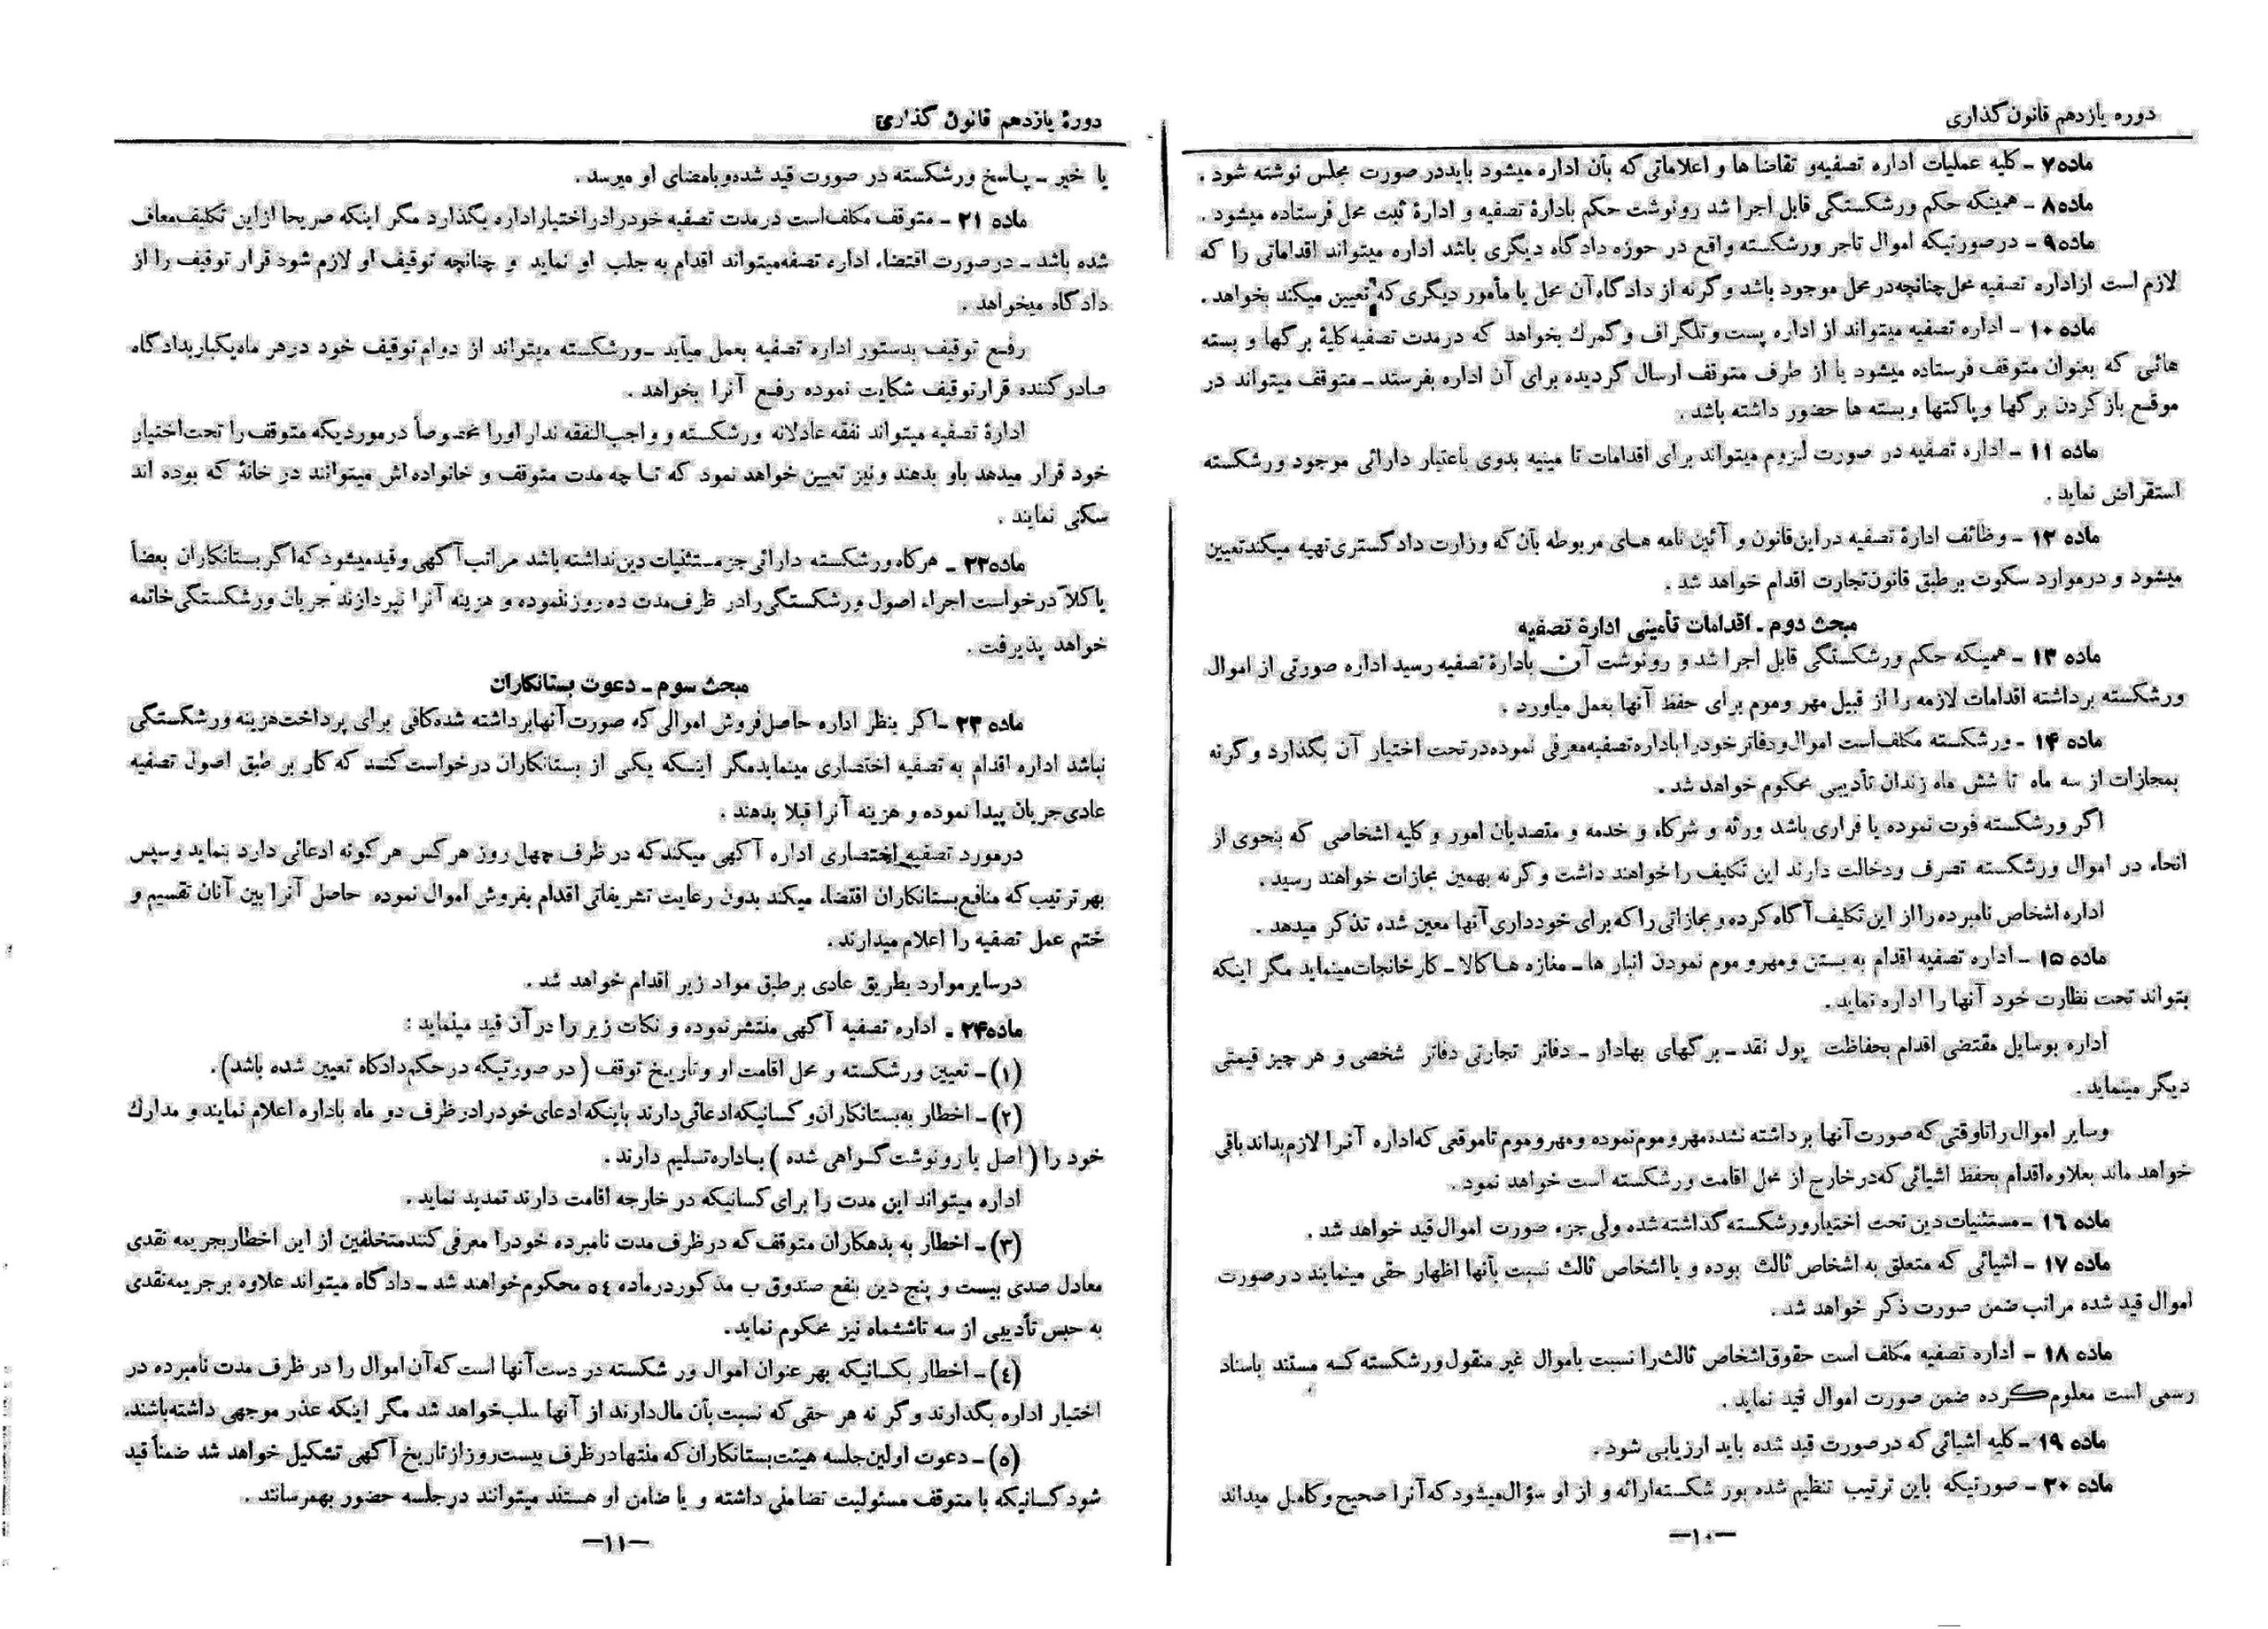 دوره یازدهم قانون‌گذاری
ماده ۷ ـ کلیه عملیات اداره تصفیه و تقاضا ها و اعلاماتی که بآن اداره میشود باید در صورت مجلس نوشته شود .
ماده ۸ ـ همینکه حکم ورشکستگی قابل اجرا شد رونوشت حکم بادارۀ تصفیه و ادارۀ ثبت محل فرستاده میشود .
ماده ۹ ـ در صورتیکه اموال تاجر ورشکسته واقع در حوزه دادگاه دیگری باشد اداره میتواند اقداماتی را که
لازم است از اداره تصفیه محل چنانچه در محل موجود باشد و گرنه از دادگاه آن محل یا مأمور دیگری که تعیین میکند بخواهد .
ماده ۱۰ ـ اداره تصفیه میتواند از اداره پست و تلگراف و گمرک بخواهد که در مدت تصفیه کلیۀ برگها و بسته
هائی که بعنوان متوقف فرستاده میشود یا از طرف متوقف ارسال گردیده برای آن اداره بفرستد ـ متوقف میتواند در
موقع باز کردن برگها و پاکتها و بسته ها حضور داشته باشد .
ماده ۱۱ ـ اداره تصفیه در صورت لزوم میتواند برای اقدامات تا مینیه بدوی باعتبار دارائی موجود ورشکسته
استقراض نماید .
ماده ۱۲ ـ وظائف ادارۀ تصفیه در این قانون و آئین نامه های مربوطه بآن که وزارت دادگستری تهیه میکند تعیین
میشود و در موارد سکوت بر طبق قانون تجارت اقدام خواهد شد .
مبحث دوم ـ اقدامات تأمینی ادارۀ تصفیه
ماده ۱۳ ـ همینکه حکم ورشکستگی قابل اجرا شد و رونوشت آن بادارۀ تصفیه رسید اداره صورتی از اموال
ورشکسته برداشته اقدامات لازمه را از قبیل مهر و موم برای حفظ آنها بعمل میاورد .
ماده ۱۴ ـ ورشکسته مکلف است اموال و دفاتر خود را باداره تصفیه معرفی نموده در تحت اختیار آن بگذارد و گرنه
بمجازات از سه ماه تا شش ماه زندان تأدیبی محکوم خواهد شد .
اگر ورشکسته فوت نموده یا فراری باشد ورثه و شرکاء و خدمه و متصدیان امور و کلیه اشخاصی که بنحوی از
انحاء در اموال ورشکسته تصرف و دخالت دارند این تکلیف را خواهند داشت و گرنه بهمین مجازات خواهند رسید .
اداره اشخاص نامبرده را از این تکلیف آگاه کرده و مجازاتی را که برای خودداری آنها معین شده تذکر میدهد .
ماده ۱۵ ـ اداره تصفیه اقدام به بستن و مهر و موم نمودن انبار ها ـ مغازه ها کالا ـ کارخانجات مینماید مگر اینکه
بتواند تحت نظارت خود آنها را اداره نماید .
اداره بوسایل مقتضی اقدام بحفاظت پول نقد ـ برگهای بهادار ـ دفاتر تجارتی دفاتر شخصی و هر چیز قیمتی
دیگر مینماید .
وسایر اموال را تا وقتی که صورت آنها برداشته نشده مهر و موم نموده و مهر و موم تا موقعی که اداره آنرا لازم بداند باقی
خواهد ماند بعلاوه اقدام بحفظ اشیائی که در خارج از محل اقامت ورشکسته است خواهد نمود .
ماده ۱۶ ـ مستثنیات دین تحت اختیار ورشکسته گذاشته شده ولی جزء صورت اموال قید خواهد شد .
ماده ۱۷ ـ اشیائی که متعلق به اشخاص ثالث بوده و یا اشخاص ثالث نسبت بآنها اظهار حقی مینمایند در صورت
اموال قید شده مراتب ضمن صورت ذکر خواهد شد .
ماده ۱۸ ـ اداره تصفیه مکلف است حقوق اشخاص ثالث را نسبت باموال غیر منقول ورشکسته که مستند باسناد
رسمی است معلوم کرده ضمن صورت اموال قید نماید .
ماده ۱۹ ـ کلیه اشیائی که در صورت قید شده باید ارزیابی شود .
ماده ۲۰ ـ صورتیکه باین ترتیب تنظیم شده بور شکسته ارائه و از او سؤال میشود که آنرا صحیح و کامل میداند
—۱۰—
دورۀ یازدهم قانون گذاری
یا خیر ـ پاسخ ورشکسته در صورت قید شده و بامضای او میرسد .
ماده ۲۱ ـ متوقف مکلف است در مدت تصفیه خود را در اختیار اداره بگذارد مگر اینکه صریحا از این تکلیف معاف
شده باشد ـ در صورت اقتضاء اداره تصفه میتواند اقدام به جلب او نماید و چنانچه توقیف او لازم شود قرار توقیف را از
دادگاه میخواهد .
رفع توقیف بدستور اداره تصفیه بعمل میآید ـ ورشکسته میتواند از دوام توقیف خود در هر ماه یکبار بدادگاه
صادر کننده قرار توقیف شکایت نموده رفع آنرا بخواهد .
ادارۀ تصفیه میتواند نفقه عادلانه ورشکسته و واجب النفقه ندار اورا مخصوصاً در موردیکه متوقف را تحت اختیار
خود قرار میدهد باو بدهند و نیز تعیین خواهد نمود که تا چه مدت متوقف و خانواده اش میتوانند در خانۀ که بوده اند
سکنی نمایند .
ماده ۲۲ ـ هرگاه ورشکسته دارائی جز مستثنیات دین نداشته باشد مراتب آگهی و قید میشود که اگر بستانکاران بعضاً
یا کلا درخواست اجراء اصول ورشکستگی را در ظرف مدت ده روز ننموده و هزینه آنرا نپردازند جریان ورشکستگی خاتمه
خواهد پذیرفت .
مبحث سوم ـ دعوت بستانکاران
ماده ۲۳ ـ اگر بنظر اداره حاصل فروش اموالی که صورت آنها برداشته شده کافی برای پرداخت هزینه ورشکستگی
نباشد اداره اقدام به تصفیه اختصاری مینماید مگر اینکه یکی از بستانکاران درخواست کند که کار بر طبق اصول تصفیه
عادی جریان پیدا نموده و هزینه آنرا قبلا بدهند .
در مورد تصفیه اختصاری اداره آگهی میکند که در ظرف چهل روز هر کس هر گونه ادعائی دارد بنماید و سپس
بهر ترتیب که منافع بستانکاران اقتضاء میکند بدون رعایت تشریفاتی اقدام بفروش اموال نموده حاصل آنرا بین آنان تقسیم و
ختم عمل تصفیه را اعلام میدارند .
در سایر موارد بطریق عادی بر طبق مواد زیر اقدام خواهد شد .
ماده ۲۴ ـ اداره تصفیه آگهی منتشر نموده و نکات زیر را در آن قید مینماید :
(۱) ـ تعیین ورشکسته و محل اقامت او و تاریخ توقف ( در صورتیکه در حکم دادگاه تعیین شده باشد ) .
(۲) ـ اخطار به بستانکاران و کسانیکه ادعائی دارند باینکه ادعای خود را در ظرف دو ماه باداره اعلام نمایند و مدارک
خود را ( اصل یا رونوشت گواهی شده ) باداره تسلیم دارند .
اداره میتواند این مدت را برای کسانیکه در خارجه اقامت دارند تمدید نماید .
(۳) ـ اخطار به بدهکاران متوقف که در ظرف مدت نامبرده خود را معرفی کنند متخلفین از این اخطار بجریمه نقدی
معادل صدی بیست و پنج دین بنفع صندوق ب مذکور در ماده ٥٤ محکوم خواهند شد ـ دادگاه میتواند علاوه بر جریمه نقدی
به حبس تأدیبی از سه تا ششماه نیز محکوم نماید .
(٤) ـ اخطار بکسانیکه بهر عنوان اموال ور شکسته در دست آنها است که آن اموال را در ظرف مدت نامبرده در
اختیار اداره بگذارند و گر نه هر حقی که نسبت بآن مال دارند از آنها سلب خواهد شد مگر اینکه عذر موجهی داشته باشند .
(٥) ـ دعوت اولین جلسه هیئت بستانکاران که منتها در ظرف بیست روز از تاریخ آگهی تشکیل خواهد شد ضمناً قید
شود کسانیکه با متوقف مسئولیت تضامنی داشته و یا ضامن او هستند میتوانند در جلسه حضور بهمرسانند .
—۱۱—